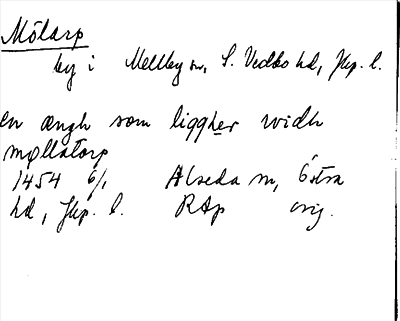 Mölarp
by i Mellby sn, S. Vedbo hd, Jkp. l.
en ængh som liggher widh
møllatorp
1454 6/1 Alseda sn, Östra
hd, Jkp. l. RAp orig.